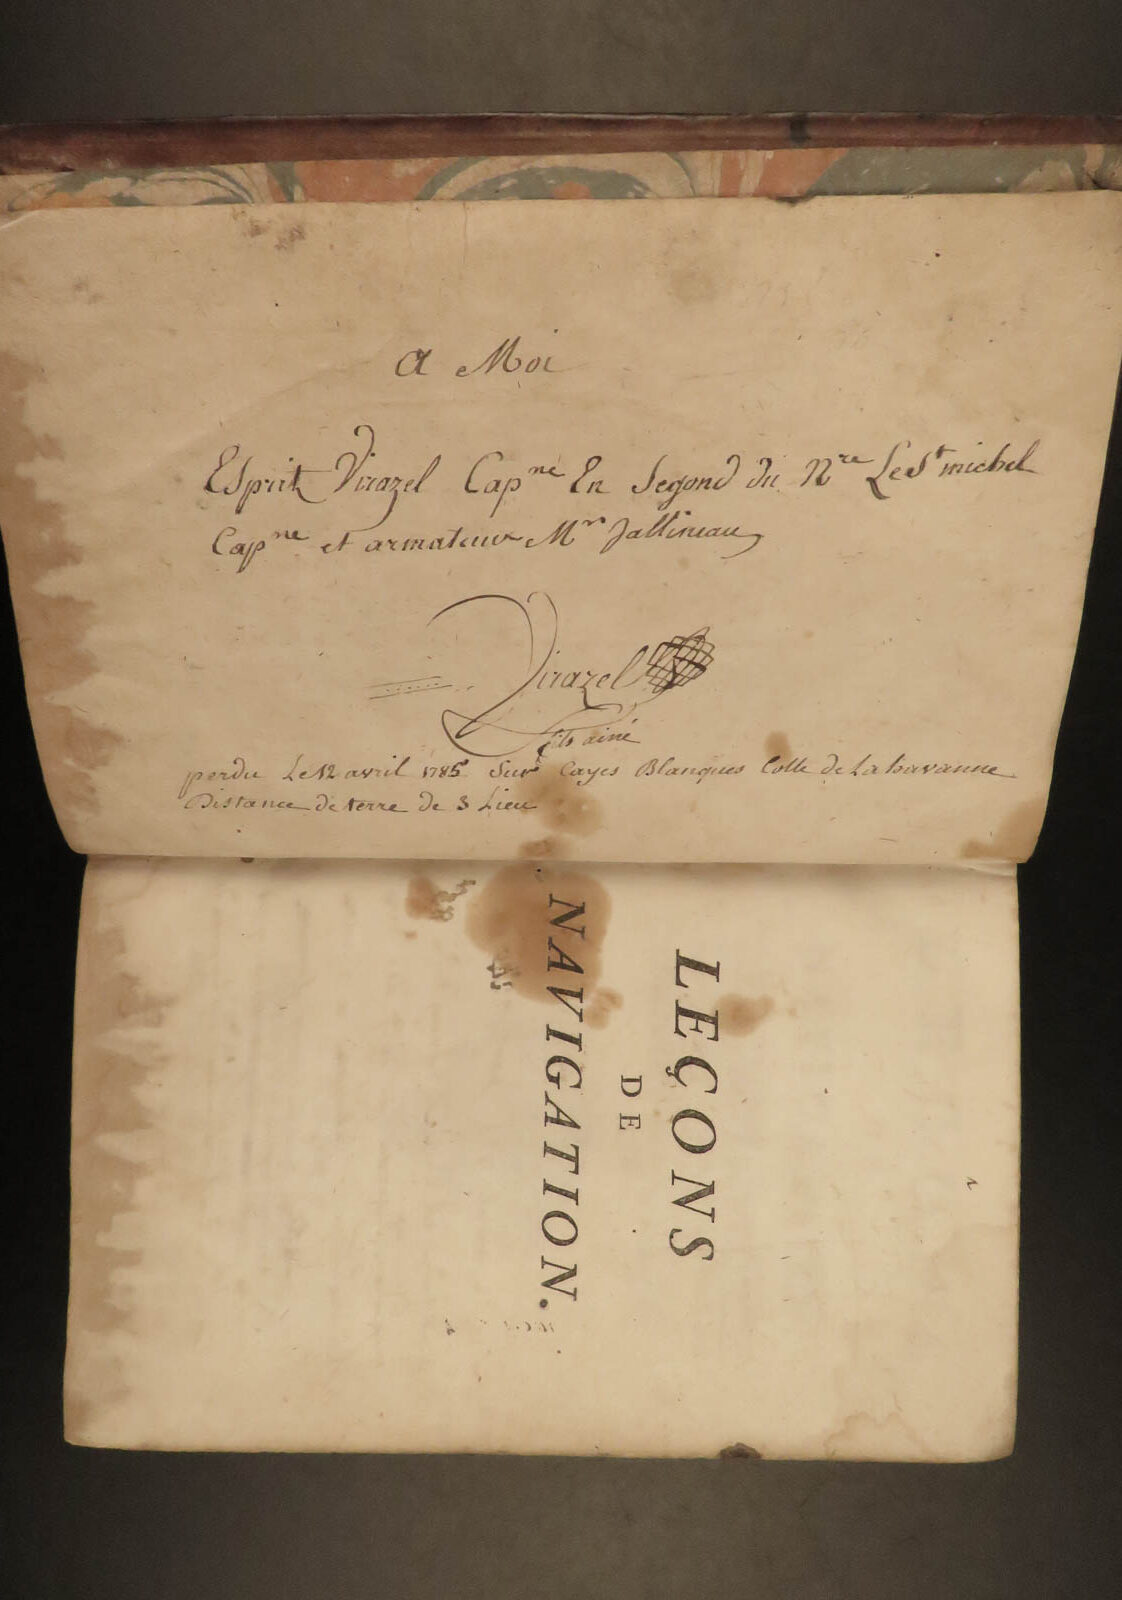 a Moi
Esprit Virazel Capne En Segond du Nre Le St michel
Capne et armateur Mr Jallineau
Virazel
fils ainé
perdu Le 12 avril 1785 Sur Cayes Blanques Cotte de La havanne
Distance de terre de 3 Lieu
LEÇONS
DE
NAVIGATION.